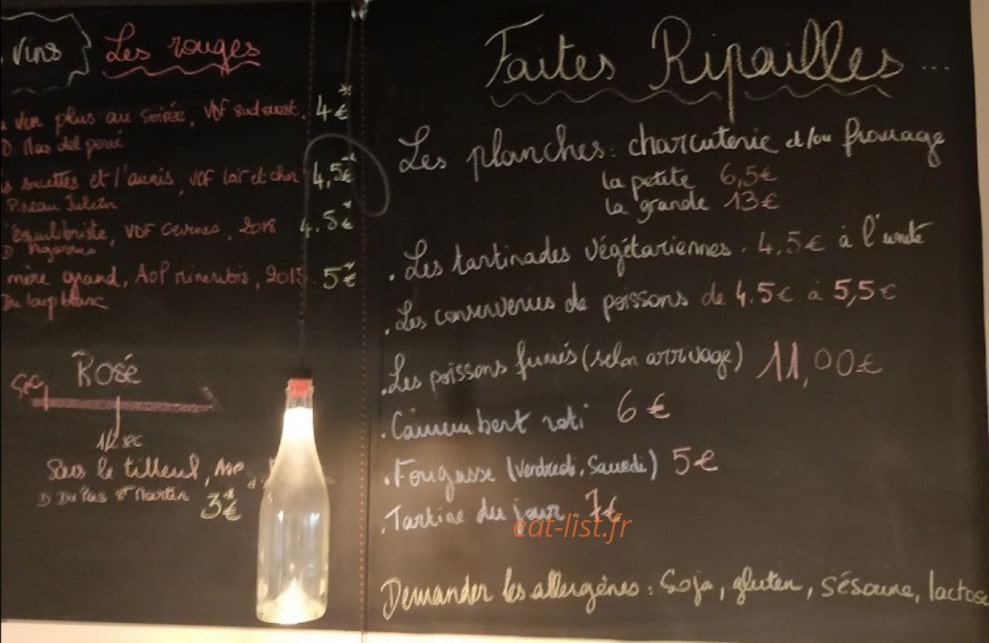 Vins
Les rouges
vin plus au soirée, VDF sud ouest. 4€
D Mas del périé
et l'aunis, VDF loir et cher 4,5€
Pineau Julien
VDF Cévennes, 2018 4.5€
mère grand, AOP minervois, 2015. 5€
Du loup blanc
Rosé
sec
1/2 sec
Sous le tilleul, AOP
D Du Mas St Martin 3€
Faites Ripailles...
Les planches: charcuterie et/ou fromage
la petite 6,5€
la grande 13€
. Les tartinades végétariennes. 4,5€ à l'unité
. Les conserveries de poissons de 4.5€ à 5,5€
. Les poissons fumés (selon arrivage) 11,00€
. Camembert roti 6€
. Fougasse (Vendredi, Samedi) 5€
. Tartine du jour. 7€
eat-list.fr
Demander les allergènes: Soja, gluten, sésame, lactose